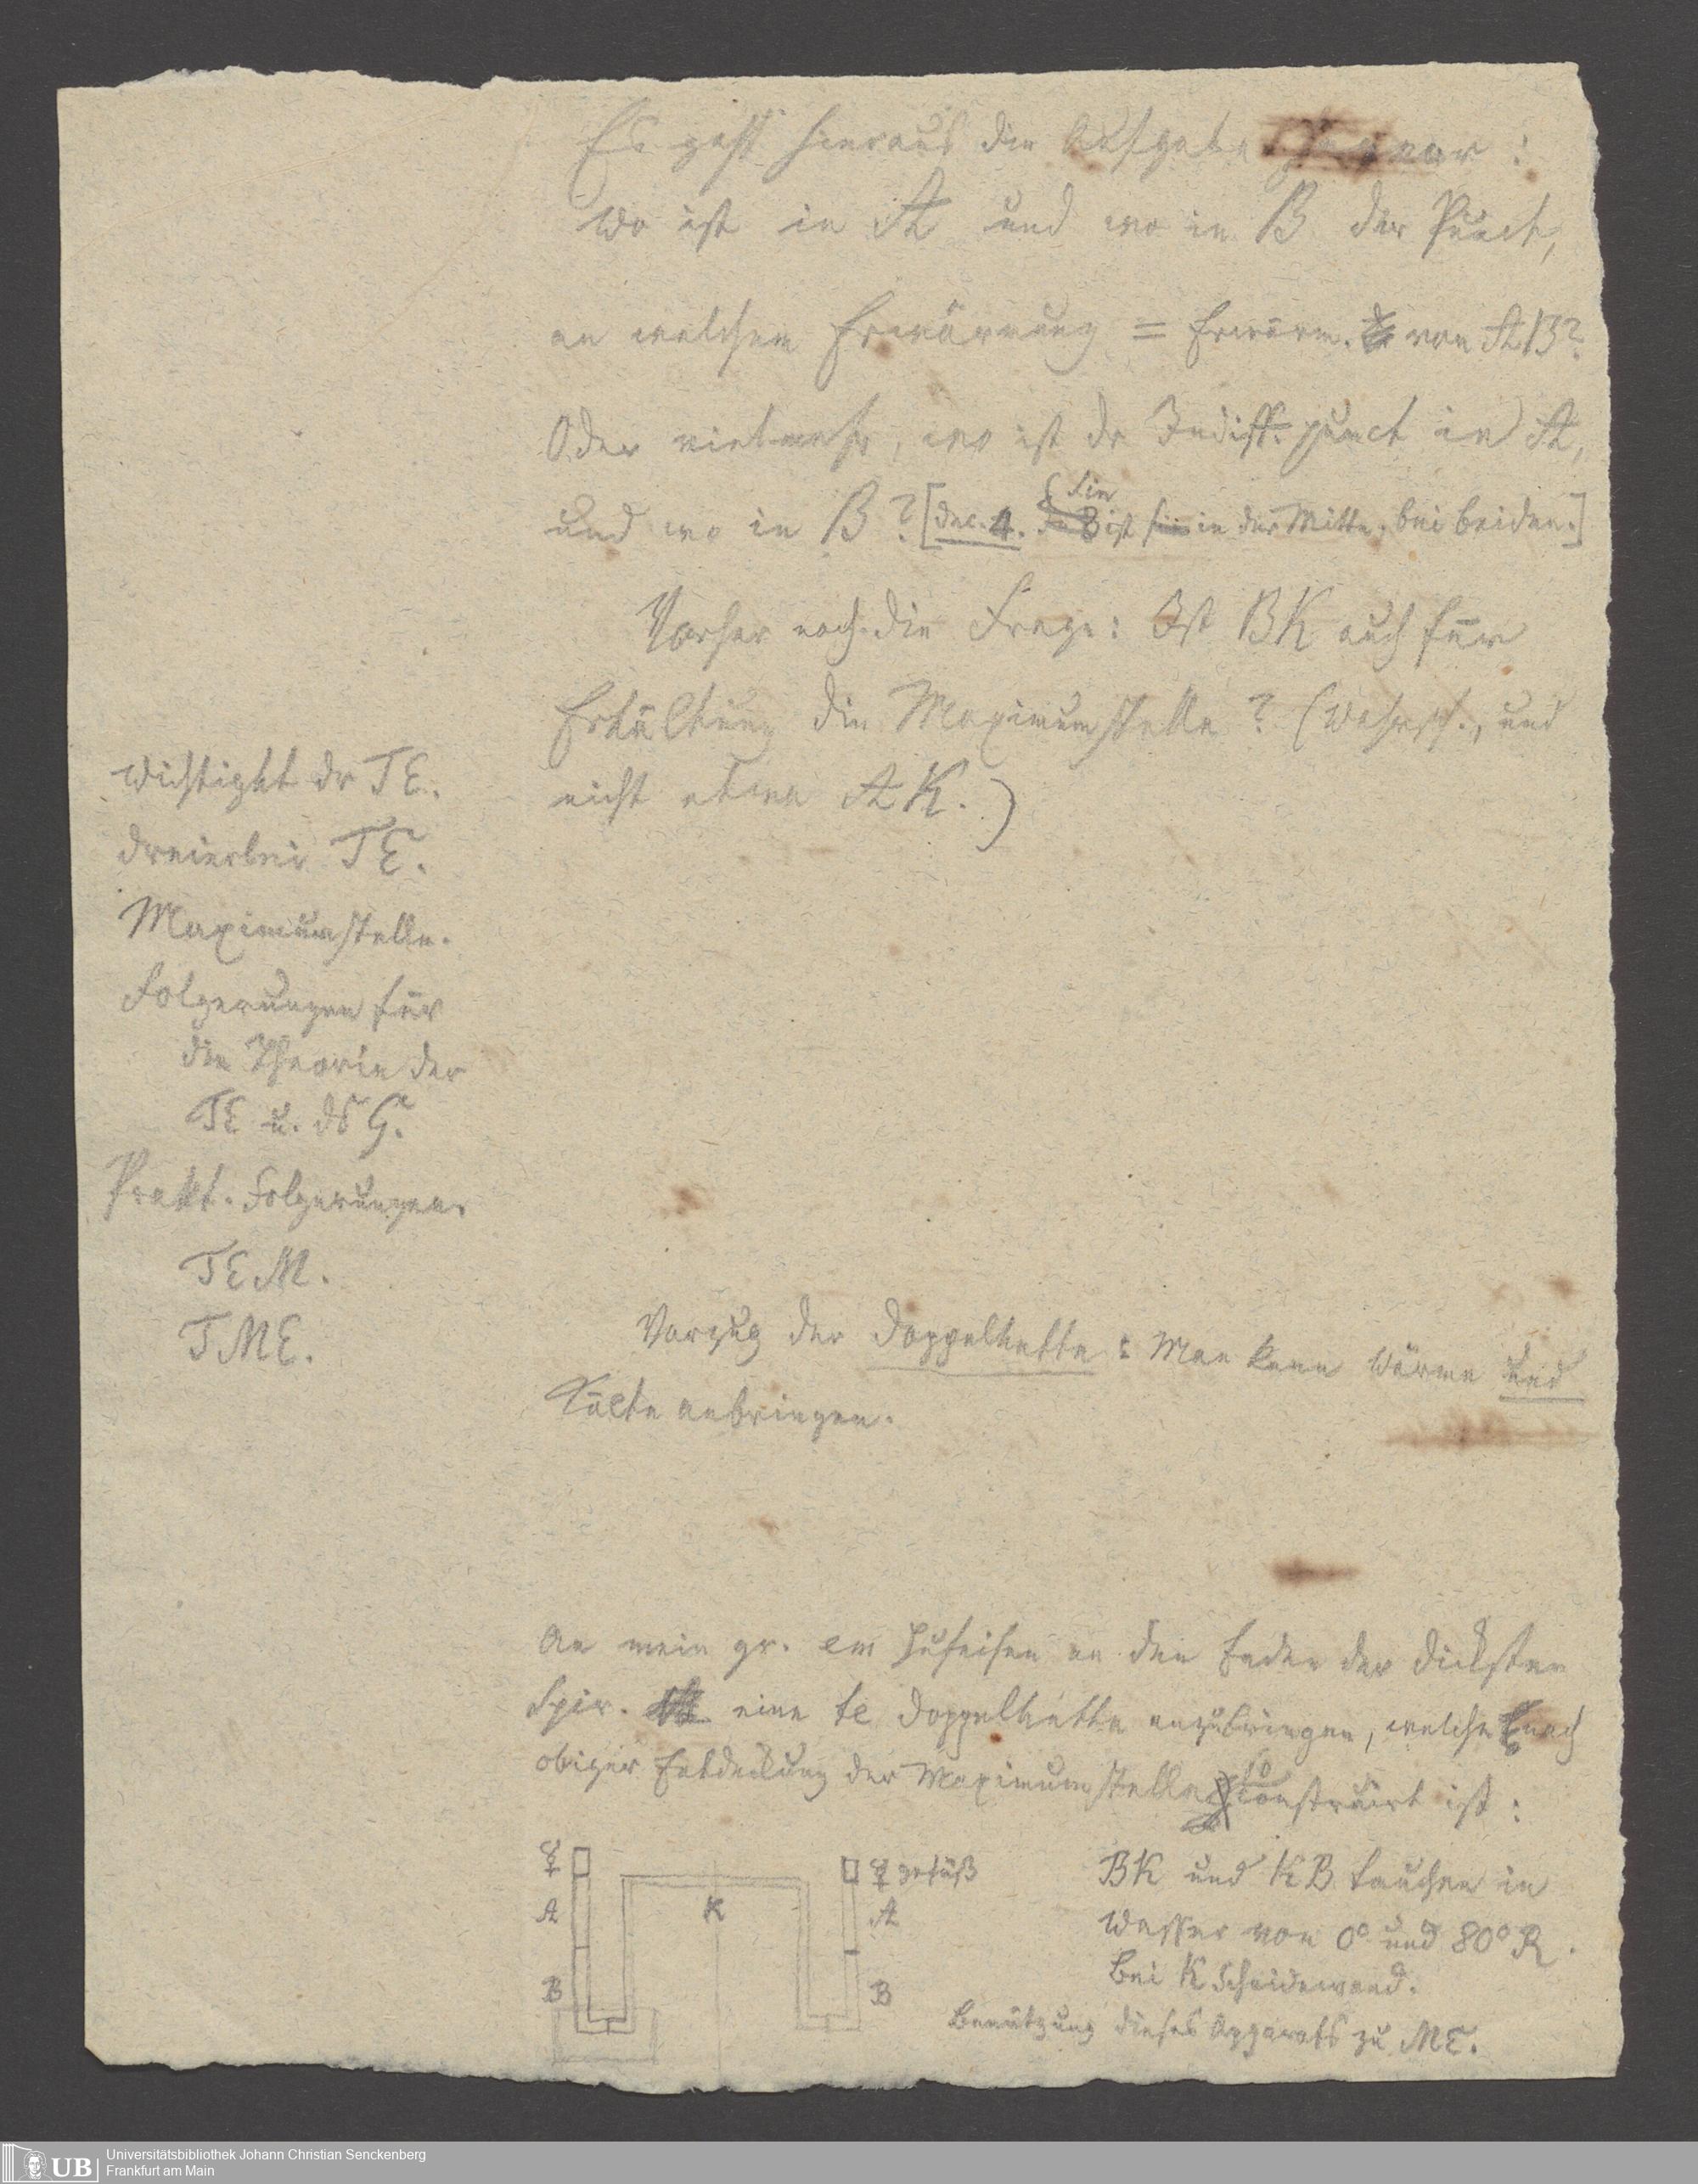 Es geht hieraus die Aufgabe hervor:
Wo ist in A und wo in B der Punct,
an welchem Erwärmung = Erwärm. von AB?
Oder vielmehr, wo ist dr Indiff.punct in A,
und wo in B? [Dec. 4. Sie ist in der Mitte, bei beiden.]
Vorher noch die Frage: Ist BK auch für
Erkältung die Maximumstelle? (Wahrsch., und
nicht etwa AK.)
Wichtigkt dr TE.
Dreierlei TE.
Maximumstelle.
Folgerungen für
die Theorie der
TE u. ds G.
Prakt. Folgerungen.
TEM.
TME.
Vorzug der Doppelkette: Man kann Wärme und
Kälte anbringen.
An mein gr. em Hufeisen an den Enden der dicksten
Spir. eine te Doppelkette anzubringen, welche nach
obiger Entdeckung der Maximumstelle so construirt ist:
☿
A
B
K
☿ gefäß
A
B
BK und KB tauchen in
Wasser von 0° und 80° R.
Bei K Scheidewand.
Benützung dieses Apparats zu ME.
UB
Universitätsbibliothek Johann Christian Senckenberg
Frankfurt am Main